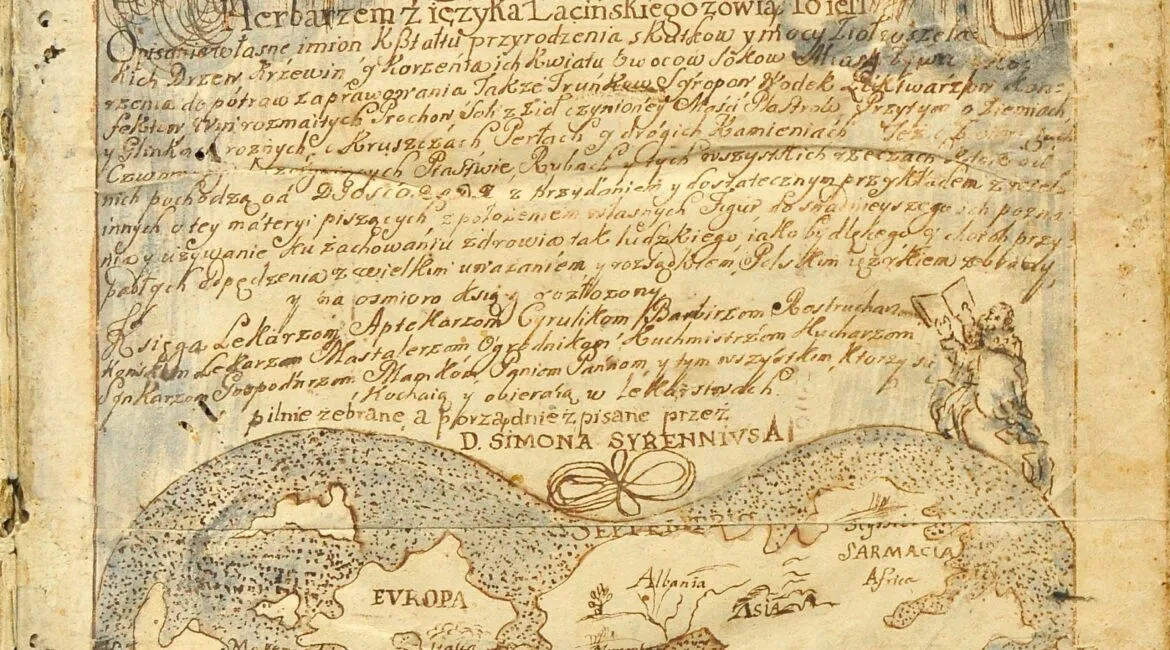 Herbarzem z ięzyka Łacińskiego zowią To iest
Opisanie własne imion Kształtu przyrodzenia skutkow y mocy Zioł wszela
kich Drzew Krzewin y Korzenia ich Kwiatu Owocow Sokow Miasg
rzenia do potraw zaprawowania Także Trunkow Syropow Wodek Likwarzow Kon-
fektow Win rozmaitych Prochow Soli z zioł czynioney Maści Plastrow Przytym o Ziemiach
y Glinkach roznych o Kruszczach Perłach y drogich Kamieniach Też o
Czworo Ptastwie, Rybach y tych wszystkich rzeczach
nich pochodzą od z przydaniem y dostatecznym przykładem z
innych o tey materyi piszących z położeniem własnych Figur do snadnieyszego ich pozna
nia y używanie ku zachowaniu zdrowia tak ludzkiego iako bydlęcego y chorob przy
padłych odpędzenia z wielkim uważaniem y rozsądkiem Polskim ięzykiem zebrany
y na osmioro Ksiąg rozłożony
Księga Lekarzom Aptekarzom Cyrulikom Barbirzom Rostrucharzom
końskim Lekarzom Mastalerzom Ogrodnikom Kuchmistrzom Kucharzom
Synkarzom Gospodarzom Mamkom Paniem Pannom y tym wszystkim ktorzy się
Kochaią y obieraią w lekarstwach
pilnie zebrane a porządnie zpisane przez
D. SIMONA SYRENNIUSA
SEPTENTRIO
SARMACIA
Albania
Africa
EVROPA
ASIA
Italia